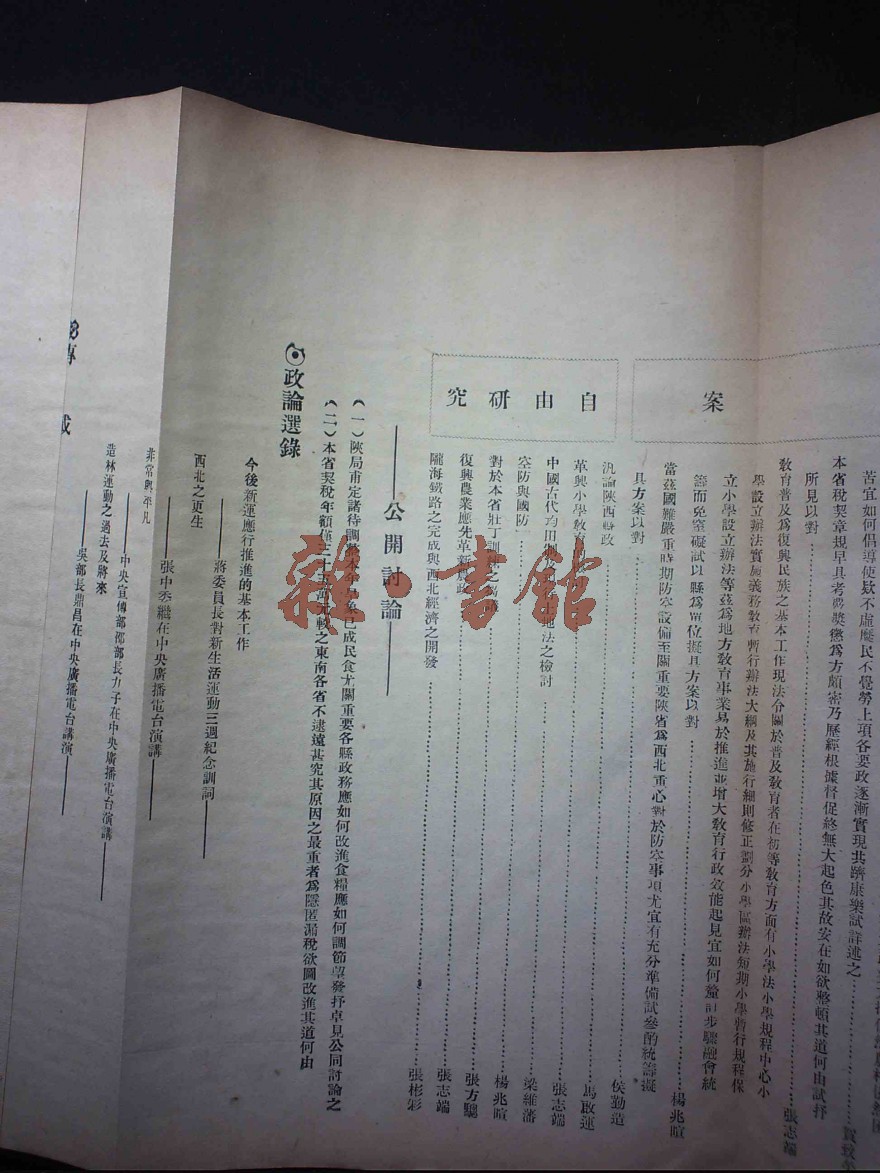 案
苦宜如何倡導使欵不虛糜民不覺勞上項各要政逐漸實現共躋康樂試詳述之
本省稅契章規早具考費獎懲爲方頗密乃歷經根據督促終無大起色其故安在如欲整頓其道何由試抒
所見以對
教育普及爲復興民族之基本工作現法令關於普及教育者在初等教育方面有小學法小學規程中心小
學設立辦法實施義務教育暫行辦法大綱及其施行細則修正劃分小學區辦法短期小學暫行規程保
立小學設立辦法等茲爲地方教育事業易於推進並增大教育行政效能起見宜如何釐訂步驟融會統
籌而免窒礙試以縣爲單位擬具方案以對 張志端
當茲國難嚴重時期防空設備至關重要陝省爲西北重心對於防空事項尤宜有充分準備試參酌統籌擬
具方案以對 楊兆暄
自由研究
汎論陝西縣政 侯勤造
革興小學教育 馬啟運
中國古代均田制 土地法之檢討 張志端
空防與國防 梁維藩
對於本省壯丁訓練之 楊兆暄
復興農業應先革新農政 張方鷞
隴海鐵路之完成與西北經濟之開發 張志端
張彬彩
公開討論
(一)陝局甫定諸待調 已成民食尤關重要各縣政務應如何改進食糧應如何調節望發抒卓見公同討論之
(二)本省契稅年額僅三十五萬元較之東南各省不逮遠甚究其原因之最重者爲隱匿漏稅欲圖改進其道何由
政論選錄
今後新運應行推進的基本工作
蔣委員長對新生活運動三週紀念訓詞
西北之更生
張中委繼在中央廣播電台演講
非常與平凡
中央宣傳部邵部長力子在中央廣播電台演講
造林運動之過去及將來
吳部長鼎昌在中央廣播電台講演
專載
雜·書館